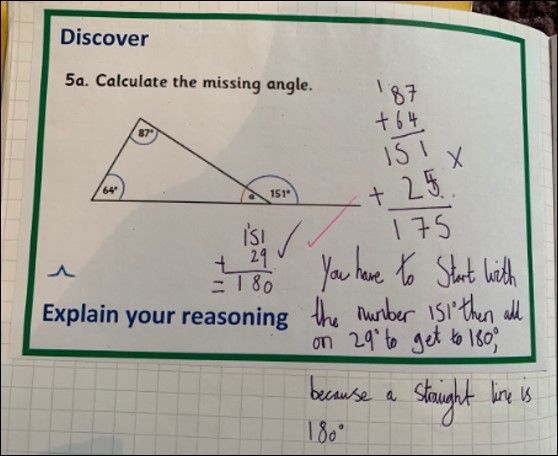 Discover
5a. Calculate the missing angle.
87°
64°
a
151°
187
+64
151 x
+ 25
175
151
+ 29
= 180
You have to Start with
Explain your reasoning the number 151° then add
on 29° to get to 180°,
because a straight line is
180°